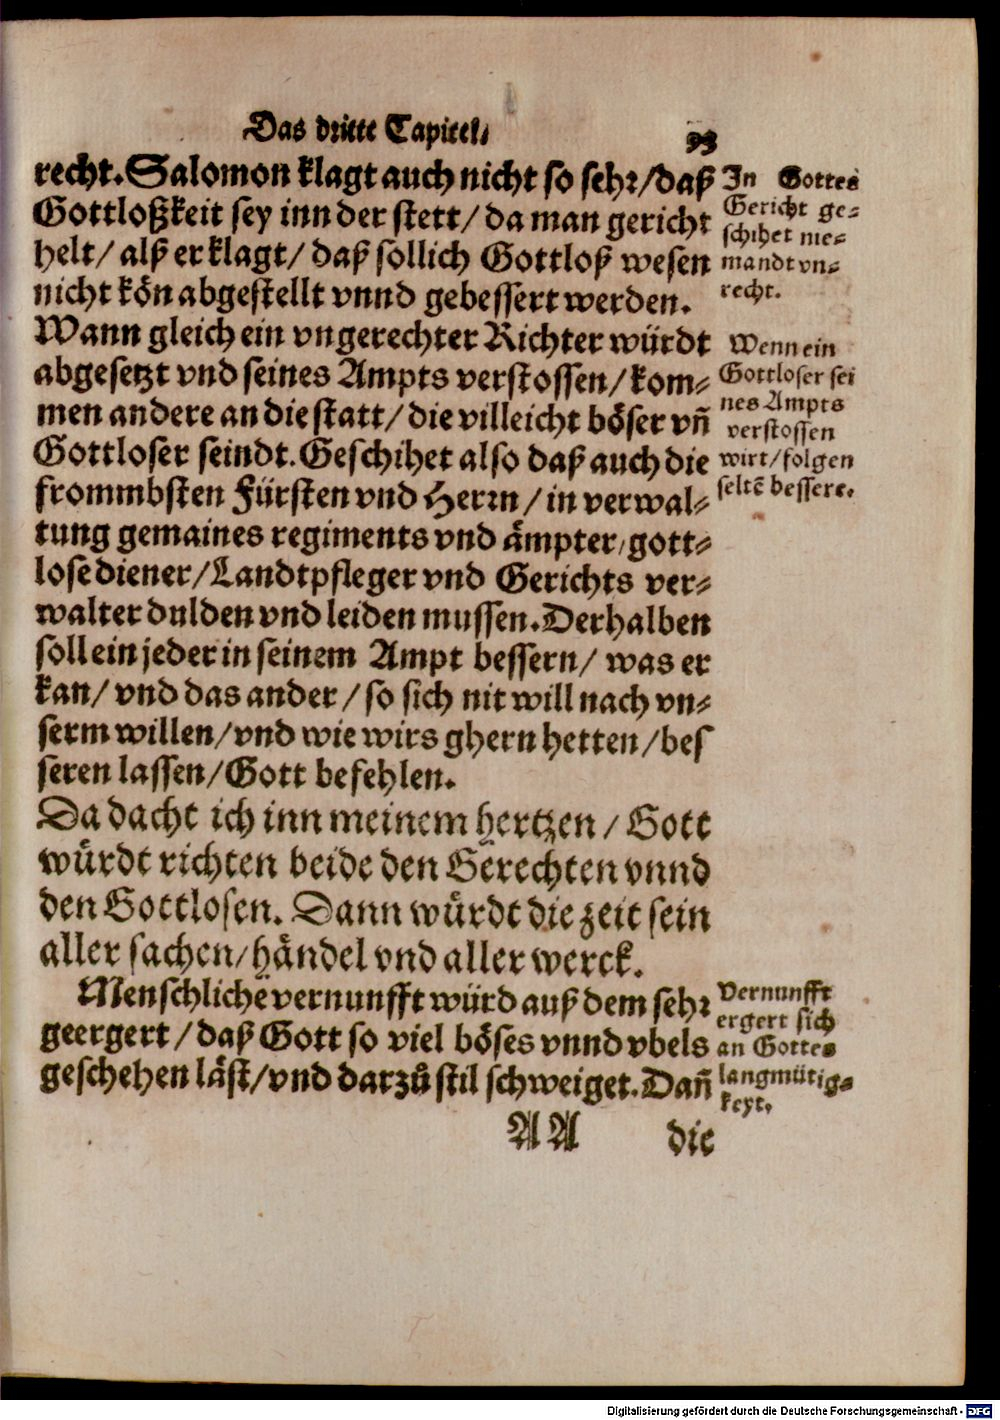 Das dritte Capitel.
93
recht. Salomon klagt auch nicht so sehr/daß
Gottloßkeit sey inn der stett/ da man gericht
helt/ alß er klagt/ daß sollich Gottloß wesen
nicht kön abgestellt vnnd gebessert werden.
Wann gleich ein vngerechter Richter würdt
abgesetzt vnd seines Ampts verstossen/ kom⸗
men andere an die statt/ die villeicht böser vñ
Gottloser seindt. Geschihet also daß auch die
frommbsten Fürsten vnd Herrn/ in verwal⸗
tung gemaines regiments vnd ämpter/ gott⸗
lose diener/ Landtpfleger vnd Gerichts ver⸗
walter dulden vnd leiden mussen. Derhalben
soll ein jeder in seinem Ampt bessern/ was er
kan/ vnd das ander/ so sich nit will nach vn⸗
serm willen/ vnd wie wirs ghern hetten/ bes
seren lassen/ Gott befehlen.
Da dacht ich inn meinem hertzen/ Gott
würdt richten beide den Gerechten vnnd
den Gottlosen. Dann würdt die zeit sein
aller sachen/ händel vnd aller werck.
Menschliche vernunfft würd auß dem sehr
geergert/ daß Gott so viel böses vnnd vbels
geschehen läst/ vnd darzů stil schweiget. Dañ
AA die
In Gottes
Gericht ge⸗
schihet nie⸗
mandt vn⸗
recht.
Wenn ein
Gottloser sei
nes Ampts
verstossen
wirt/ folgen
seltē bessere.
Vernunfft
ergert sich
an Gottes
langmütig⸗
keyt.
Digitalisierung gefördert durch die Deutsche Forschungsgemeinschaft - DFG